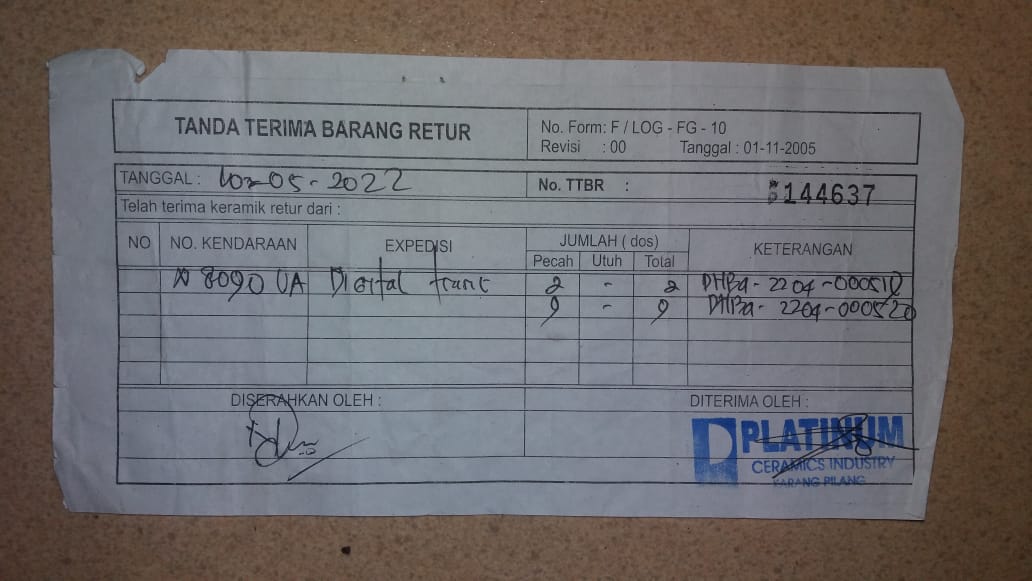 TANDA TERIMA BARANG RETUR
No. Form: F / LOG - FG - 10
Revisi : 00 Tanggal : 01-11-2005
TANGGAL : 05 - 2022
No. TTBR : 144637
Telah terima keramik retur dari :
NO NO. KENDARAAN EXPEDISI JUMLAH ( dos) KETERANGAN
Pecah Utuh Total
N 8090 UA Digital trans 2 - 2
9 - 9 DHBa - 2204 - 000520
DISERAHKAN OLEH : DITERIMA OLEH :
PLATINUM
CERAMICS INDUSTRY
KARANG PILANG